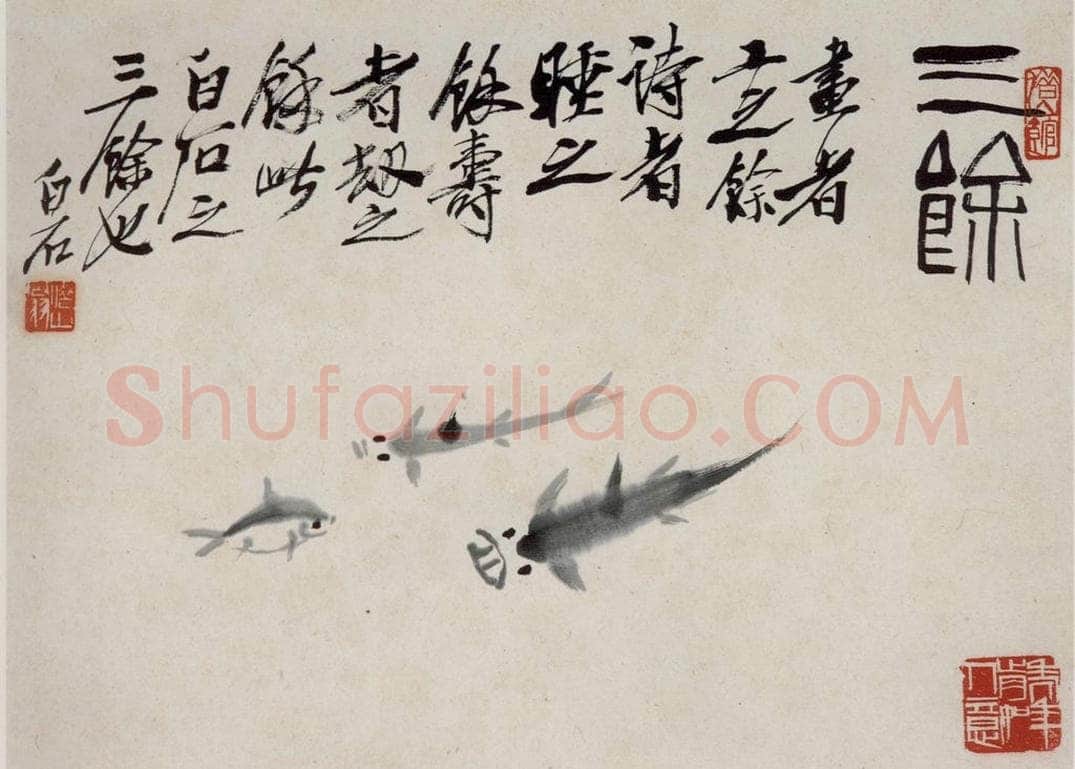 三餘
畫者
工之餘
詩者
睡之
餘壽
者劫之
餘此
白石之
三餘也
白石
借山翁
Shufaziliao.COM